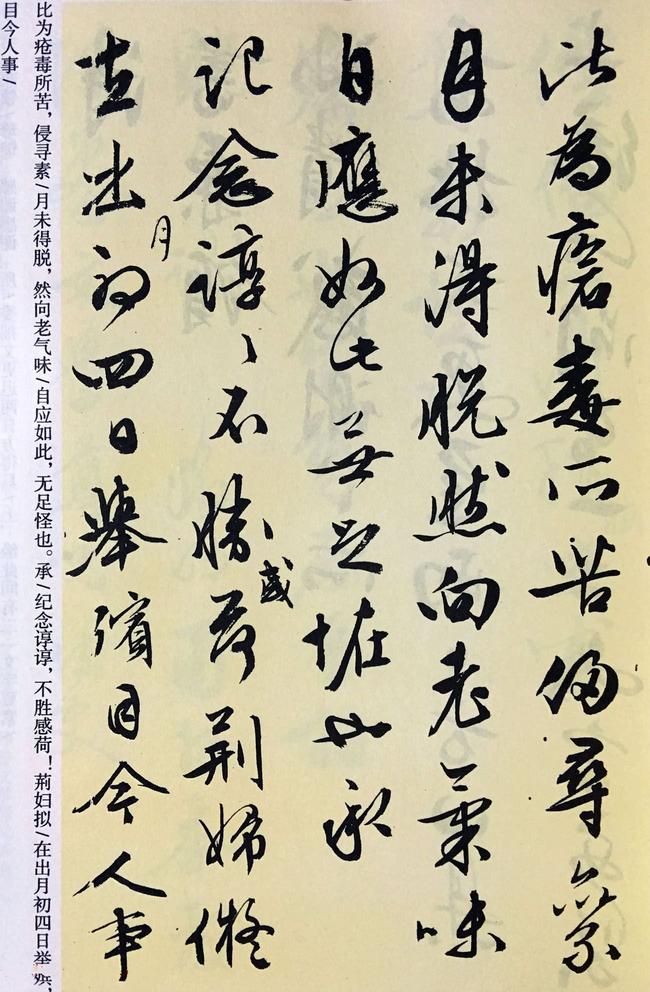 比為瘡毒所苦侵尋累
月未得脫然向老氣味
自應如此無足怪也承
記念諄〻不勝感荷荊婦儗
在出月初四日舉殯目今人事
比为疮毒所苦，侵寻素/月未得脱，然向老气味/自应如此，无足怪也。承/纪念谆谆，不胜感荷！荆妇拟/在出月初四日举殡，
目今人事/